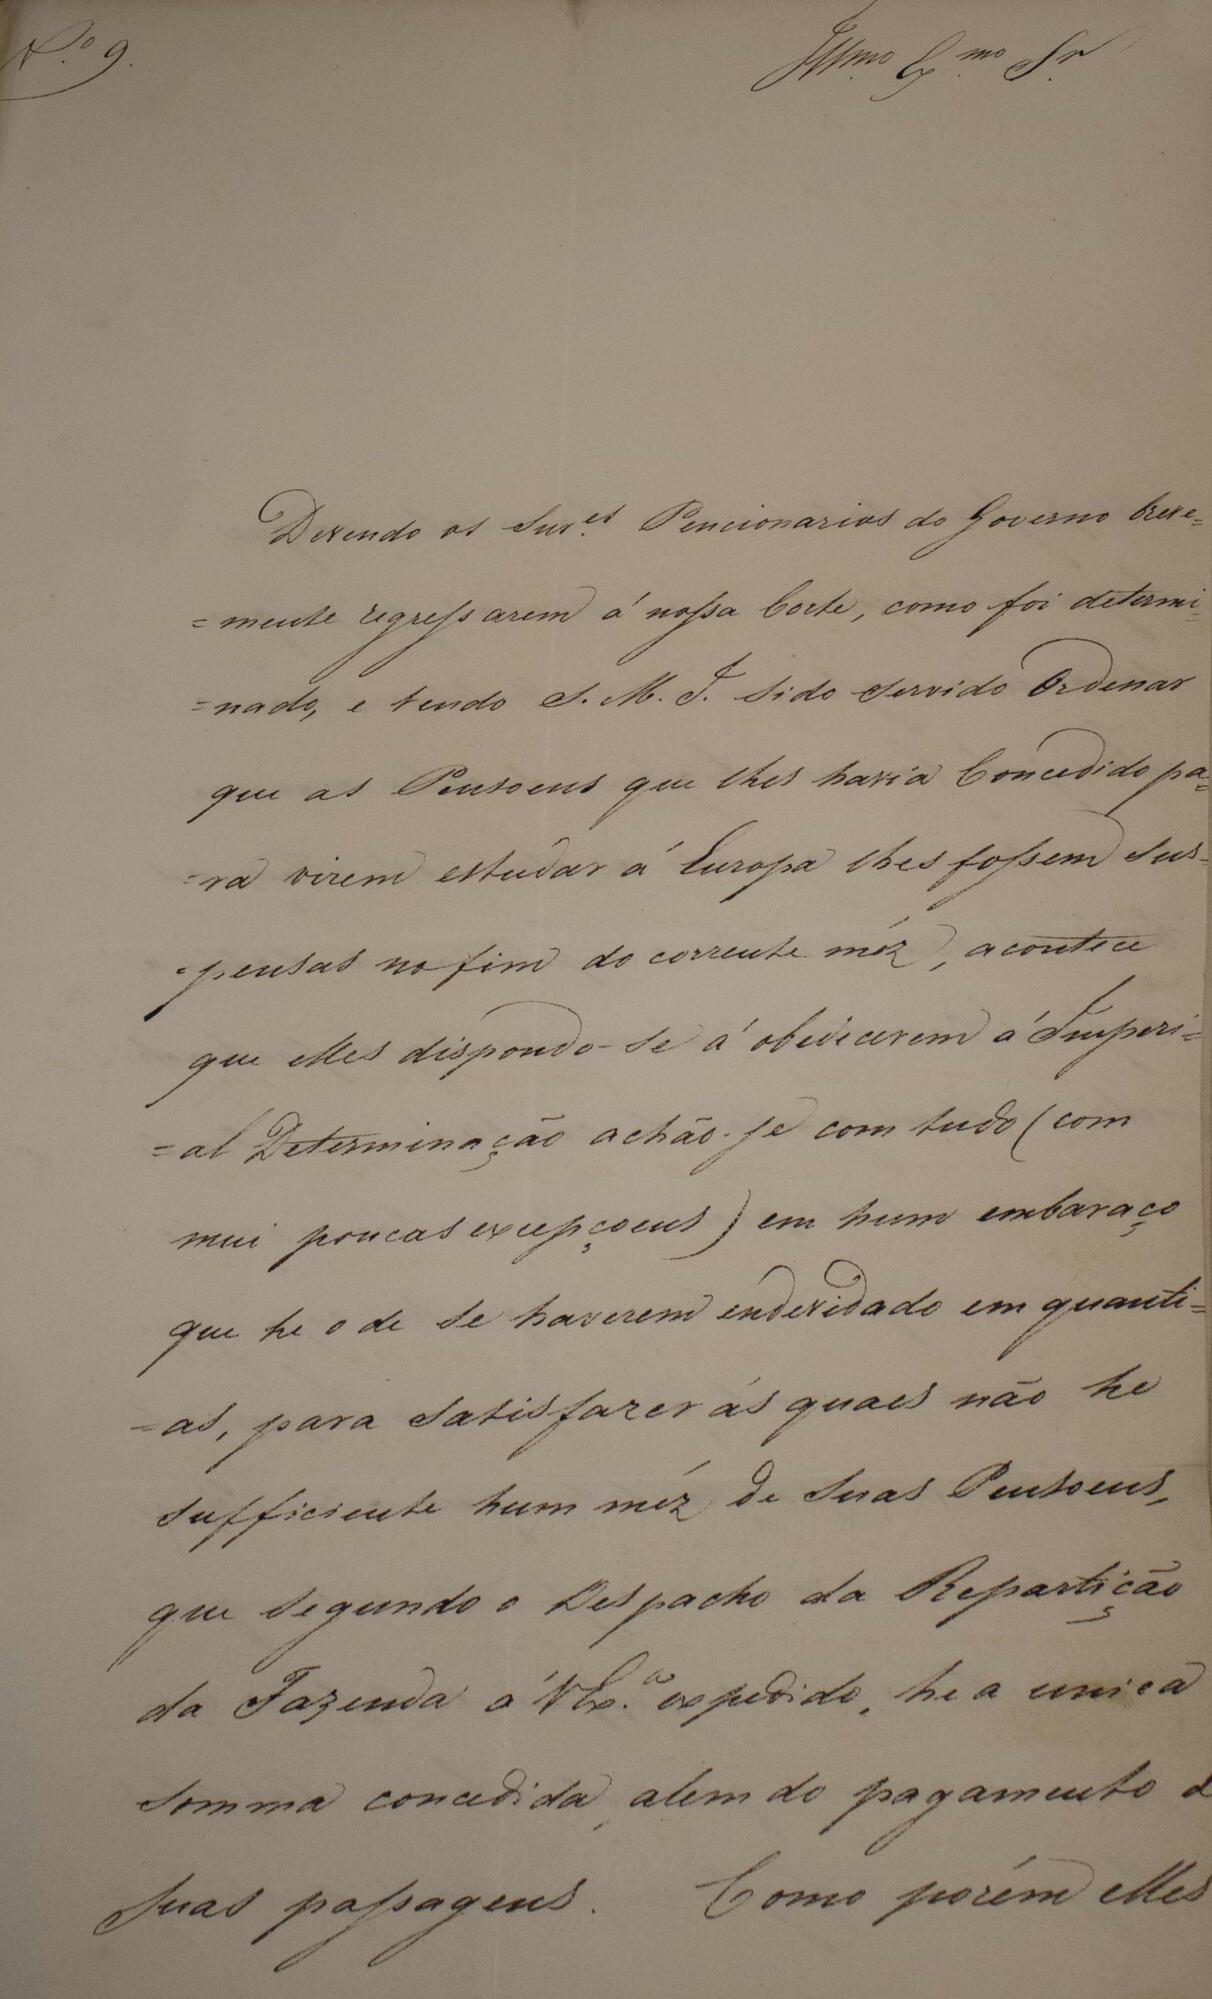 N.º 9.
Ill.mo Ex.mo Sr.
Devendo os Snr.es Pencionarios do Governo breve=
=mente regressarem á nossa Corte, como foi determi=
=nado, e tendo S. M. I. sido servido Ordenar
que as Pensoens que lhes havia Concedido pa=
=ra virem estudar á Europa lhes fossem sus=
=pensas no fim do corrente méz, acontece
que elles dispondo-se á obedecerem á Imperi=
=al Determinação achão-se com tudo (com
mui poucas excepçoens) em hum embaraço
que he o de se haverem endevidado em quanti=
=as, para satisfazer ás quaes não he
sufficiente hum méz de suas Pensoens,
que segundo o Despacho da Repartição
da Fazenda á V Ex.ª expedido, he a unica
somma concedida, alem do pagamento d
suas passagens. Como porém elles